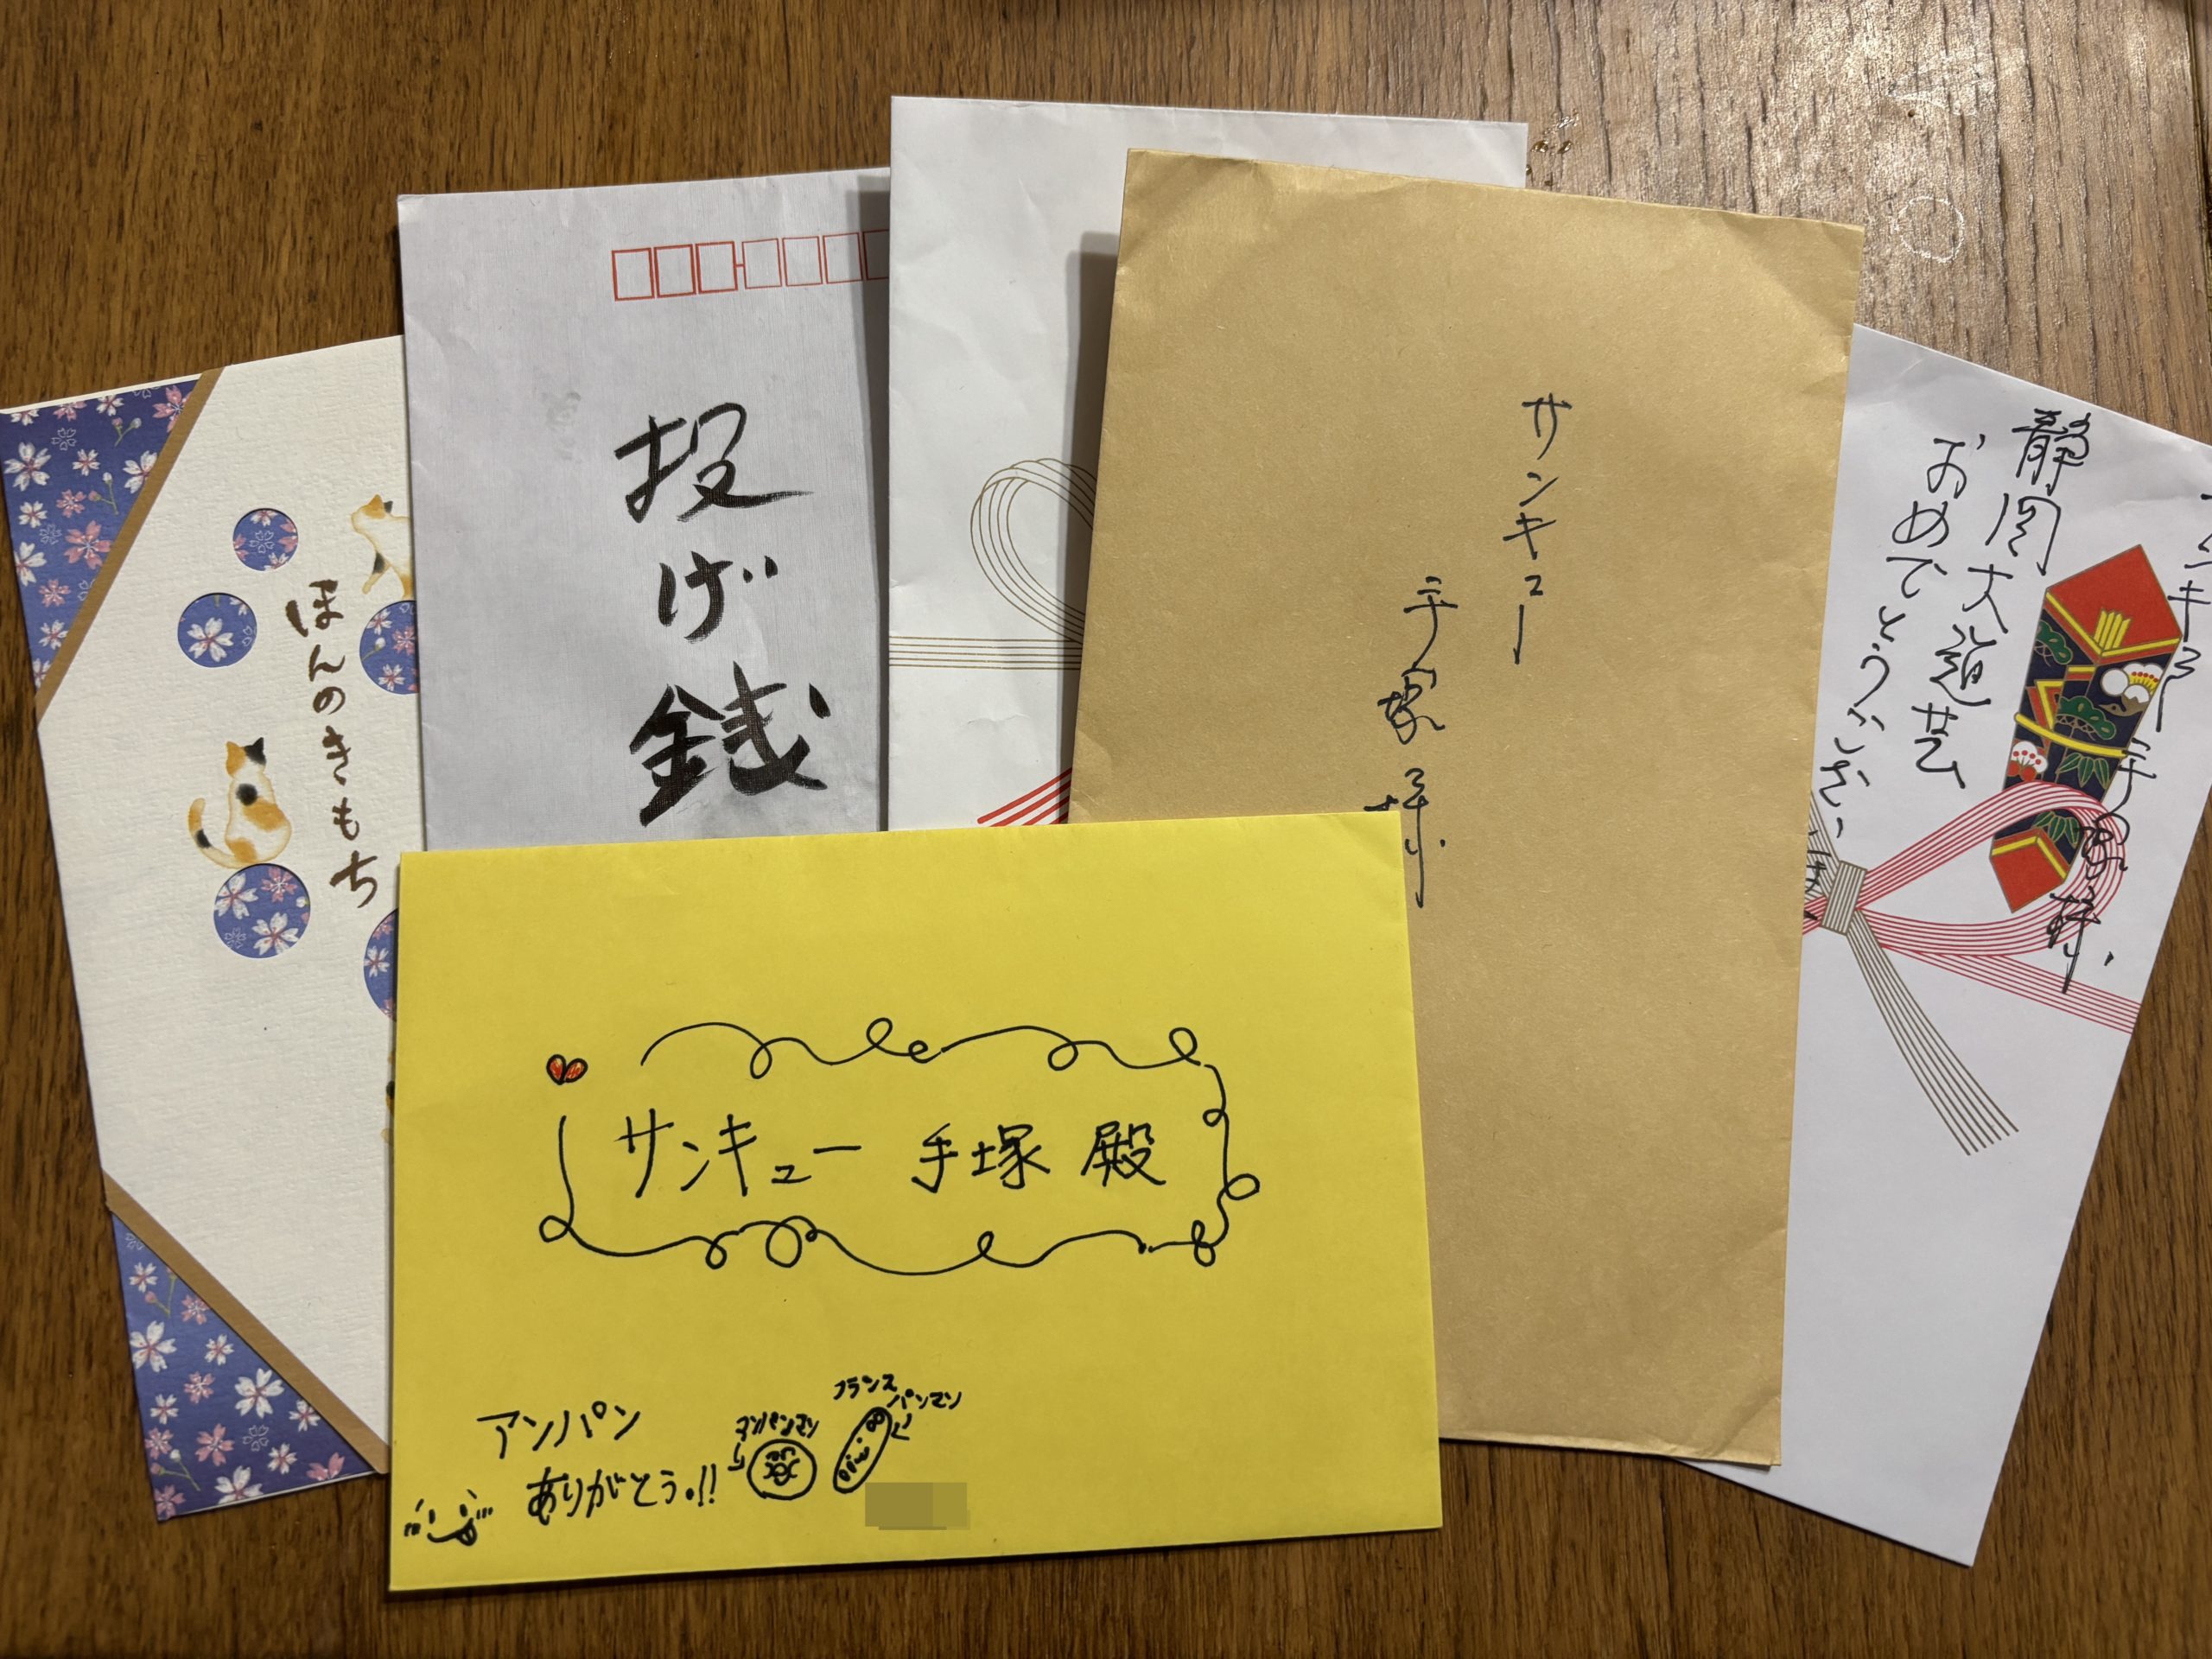 ほんのきもち
投げ銭
サンキュー
手塚様
静岡大道芸
おめでとうござい
サンキュー 手塚 殿
アンパン
ありがとう.!!
アンパンマン
フランス
パンマン